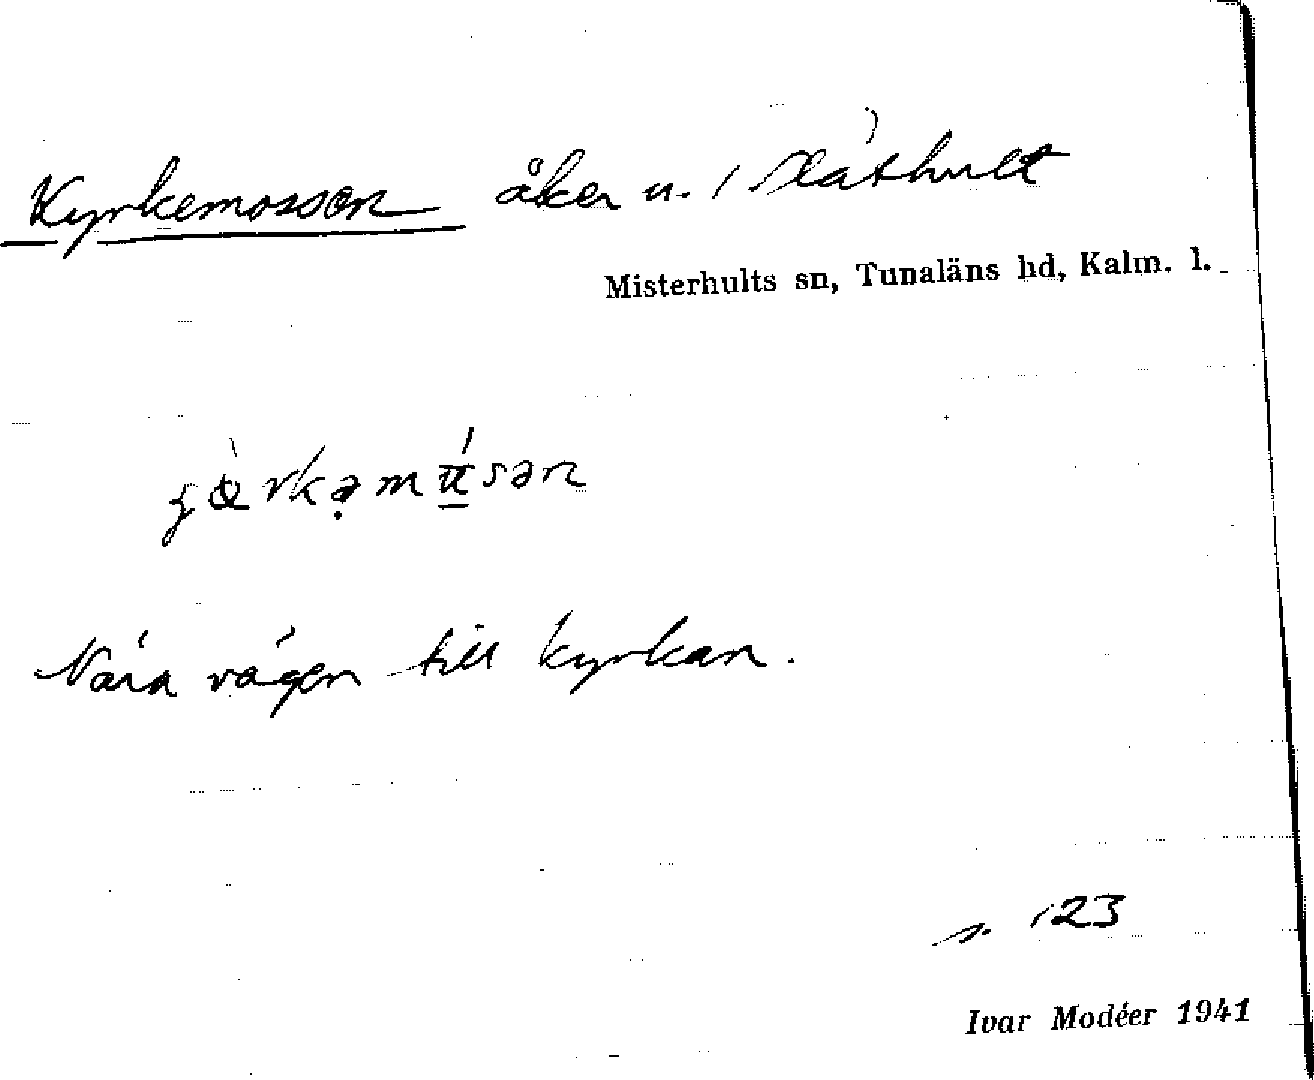 Kyrkemossen åker u. 1 Släthult
Misterhults sn, Tunaläns hd, Kalm. l.
Nära vägen till kyrkan.
s. 123
Ivar Modéer 1941